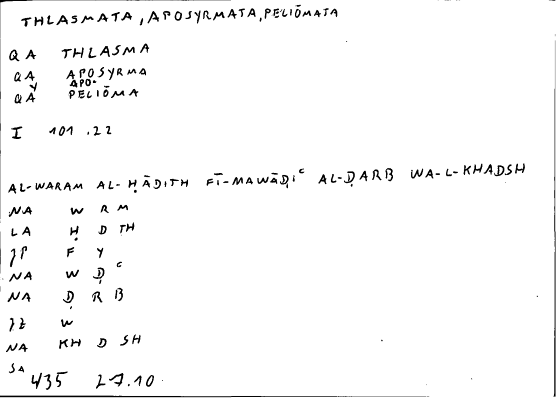 THLASMATA, APOSYRMATA, PELIŌMATA
QA THLASMA
QA APOSYRMA
QA Y APO- PELIŌMA
I 101.22
AL-WARAM AL-ḤĀDITH FĪ-MAWĀḌIᶜ AL-ḌARB WA-L-KHADSH
NA W R M
LA Ḥ D TH
JP F Y
NA W Ḍ ᶜ
NA Ḍ R B
JZ W
NA KH D SH
SA 435 27.10